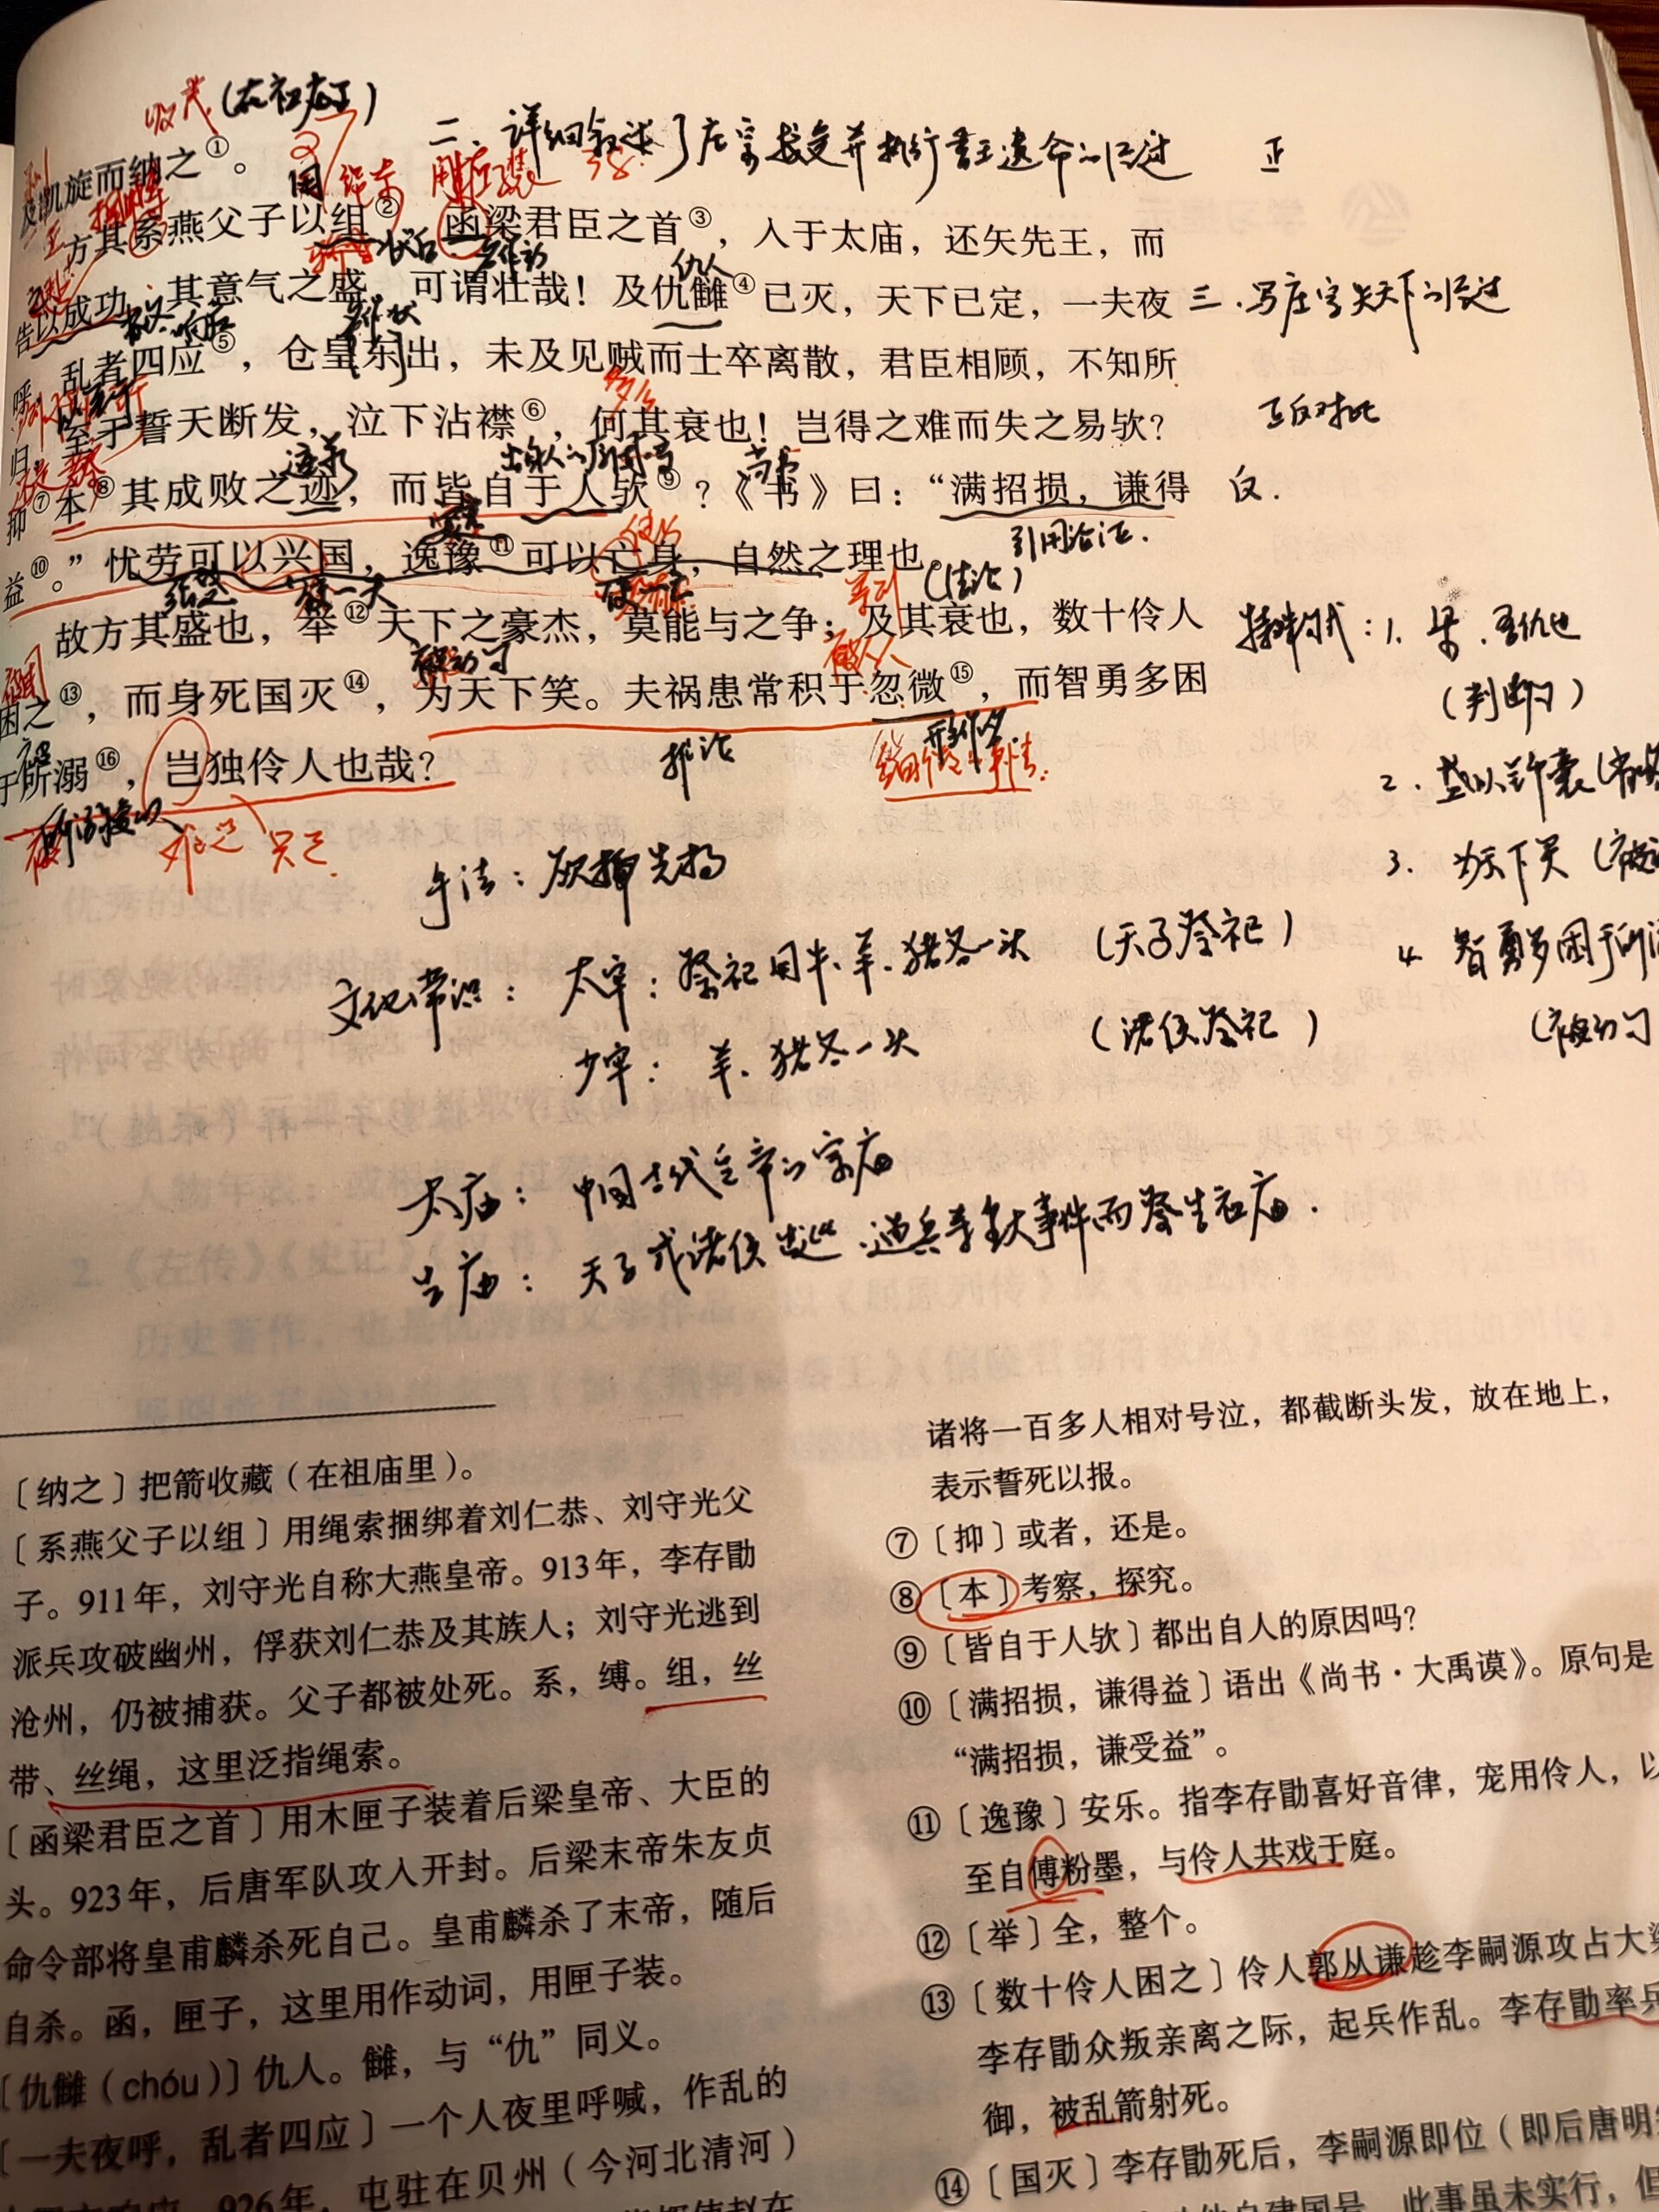 收藏(在祖庙里)
二、详细叙述了庄宗接受并执行晋王遗命的经过 正
及凯旋而纳之①。
用 绳索 用匣子装
方其系燕父子以组②,函梁君臣之首③,入于太庙,还矢先王,而
状后 名作动 仇人
告以成功,其意气之盛,可谓壮哉!及仇雠④已灭,天下已定,一夫夜
三、写庄宗失天下的经过
呼,乱者四应⑤,仓皇东出,未及见贼而士卒离散,君臣相顾,不知所
归,至于誓天断发,泣下沾襟⑥,何其衰也!岂得之难而失之易欤?
正反对比
抑⑦本⑧其成败之迹,而皆自于人欤⑨?《书》曰:“满招损,谦得
反.
益⑩。”忧劳可以兴国,逸豫⑪可以亡身,自然之理也。
引用论证.
(结论)
故方其盛也,举⑫天下之豪杰,莫能与之争;及其衰也,数十伶人
被动句
困之⑬,而身死国灭⑭,为天下笑。夫祸患常积于忽微⑮,而智勇多困
于所溺⑯,岂独伶人也哉?
推论 形作名
难道 只是.
特殊句式:1. 梁,吾仇也
(判断句)
2. 盛以锦囊
3. 为天下笑
4. 智勇多困于所
(被动句
手法:欲抑先扬
文化常识: 太牢:祭祀用牛、羊、猪各一头 (天子祭祀)
少牢: 羊、猪各一头 (诸侯祭祀)
太庙: 中国古代皇帝的宗庙
告庙: 天子或诸侯出巡、遇兵等重大事件而祭告祖庙.
〔纳之〕把箭收藏(在祖庙里)。
〔系燕父子以组〕用绳索捆绑着刘仁恭、刘守光父
子。911年,刘守光自称大燕皇帝。913年,李存勖
派兵攻破幽州,俘获刘仁恭及其族人;刘守光逃到
沧州,仍被捕获。父子都被处死。系,缚。组,丝
带、丝绳,这里泛指绳索。
〔函梁君臣之首〕用木匣子装着后梁皇帝、大臣的
头。923年,后唐军队攻入开封。后梁末帝朱友贞
命令部将皇甫麟杀死自己。皇甫麟杀了末帝,随后
自杀。函,匣子,这里用作动词,用匣子装。
〔仇雠(chóu)〕仇人。雠,与“仇”同义。
〔一夫夜呼,乱者四应〕一个人夜里呼喊,作乱的
926年,屯驻在贝州(今河北清河)
诸将一百多人相对号泣,都截断头发,放在地上,
表示誓死以报。
⑦〔抑〕或者,还是。
⑧〔本〕考察,探究。
⑨〔皆自于人欤〕都出自人的原因吗?
⑩〔满招损,谦得益〕语出《尚书·大禹谟》。原句是
“满招损,谦受益”。
⑪〔逸豫〕安乐。指李存勖喜好音律,宠用伶人,以
至自傅粉墨,与伶人共戏于庭。
⑫〔举〕全,整个。
⑬〔数十伶人困之〕伶人郭从谦趁李嗣源攻占大梁
李存勖众叛亲离之际,起兵作乱。李存勖率兵
御,被乱箭射死。
⑭〔国灭〕李存勖死后,李嗣源即位(即后唐明
此事虽未实行,但